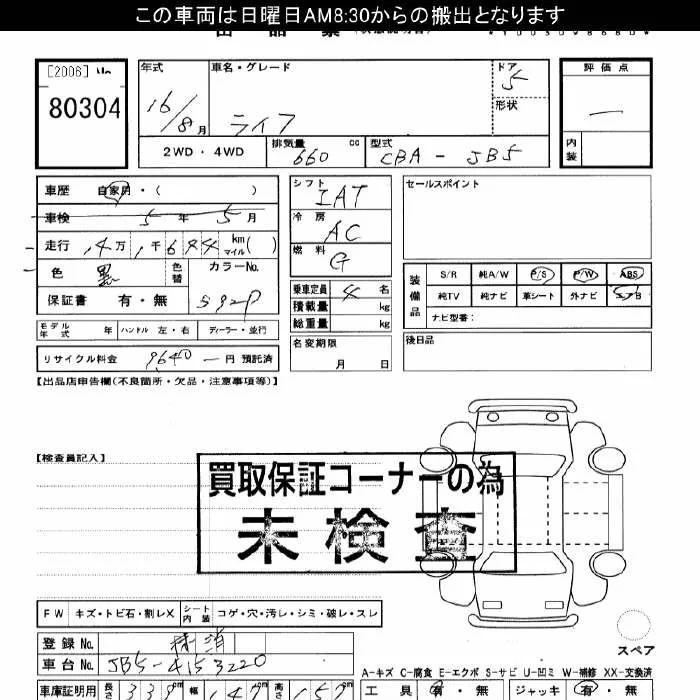 この車両は日曜日AM8:30からの搬出となります
[2006]
80304
年式
16/8月
車名・グレード
ライフ
ドア
5
形状
評価点
内装
2WD・4WD
排気量
660 cc
型式
CBA-JB5
車歴 自家用・( )
車検 5年 5月
走行 14万1千644 km マイル( )
色 黒
色替
カラーNo.
保証書 有・無
モデル年式 年 ハンドル 左・右 ディーラー・並行
リサイクル料金 9640 円 預託済
シフト
IAT
冷房
AC
燃料
G
乗車定員 4 名
積載量 kg
総重量 kg
名変期限
月 日
セールスポイント
装備品
S/R 純A/W P/S P/W ABS
純TV 純ナビ 革シート 外ナビ エアB
ナビ型番:
後日品
【出品店申告欄(不良箇所・欠品・注意事項等)】
【検査員記入】
買取保証コーナーの為
未検査
FW キズ・トビ石・割レX シート内装 コゲ・穴・汚レ・シミ・破レ・スレ
スペア
登録No. 抹消
車台No. JB5-4153220
A-キズ C-腐食 E-エクボ S-サビ U-凹ミ W-補修 XX-交換済
車庫証明用 長さ 339 cm 幅 147 cm 高さ
工具 有・無 ジャッキ 有・無